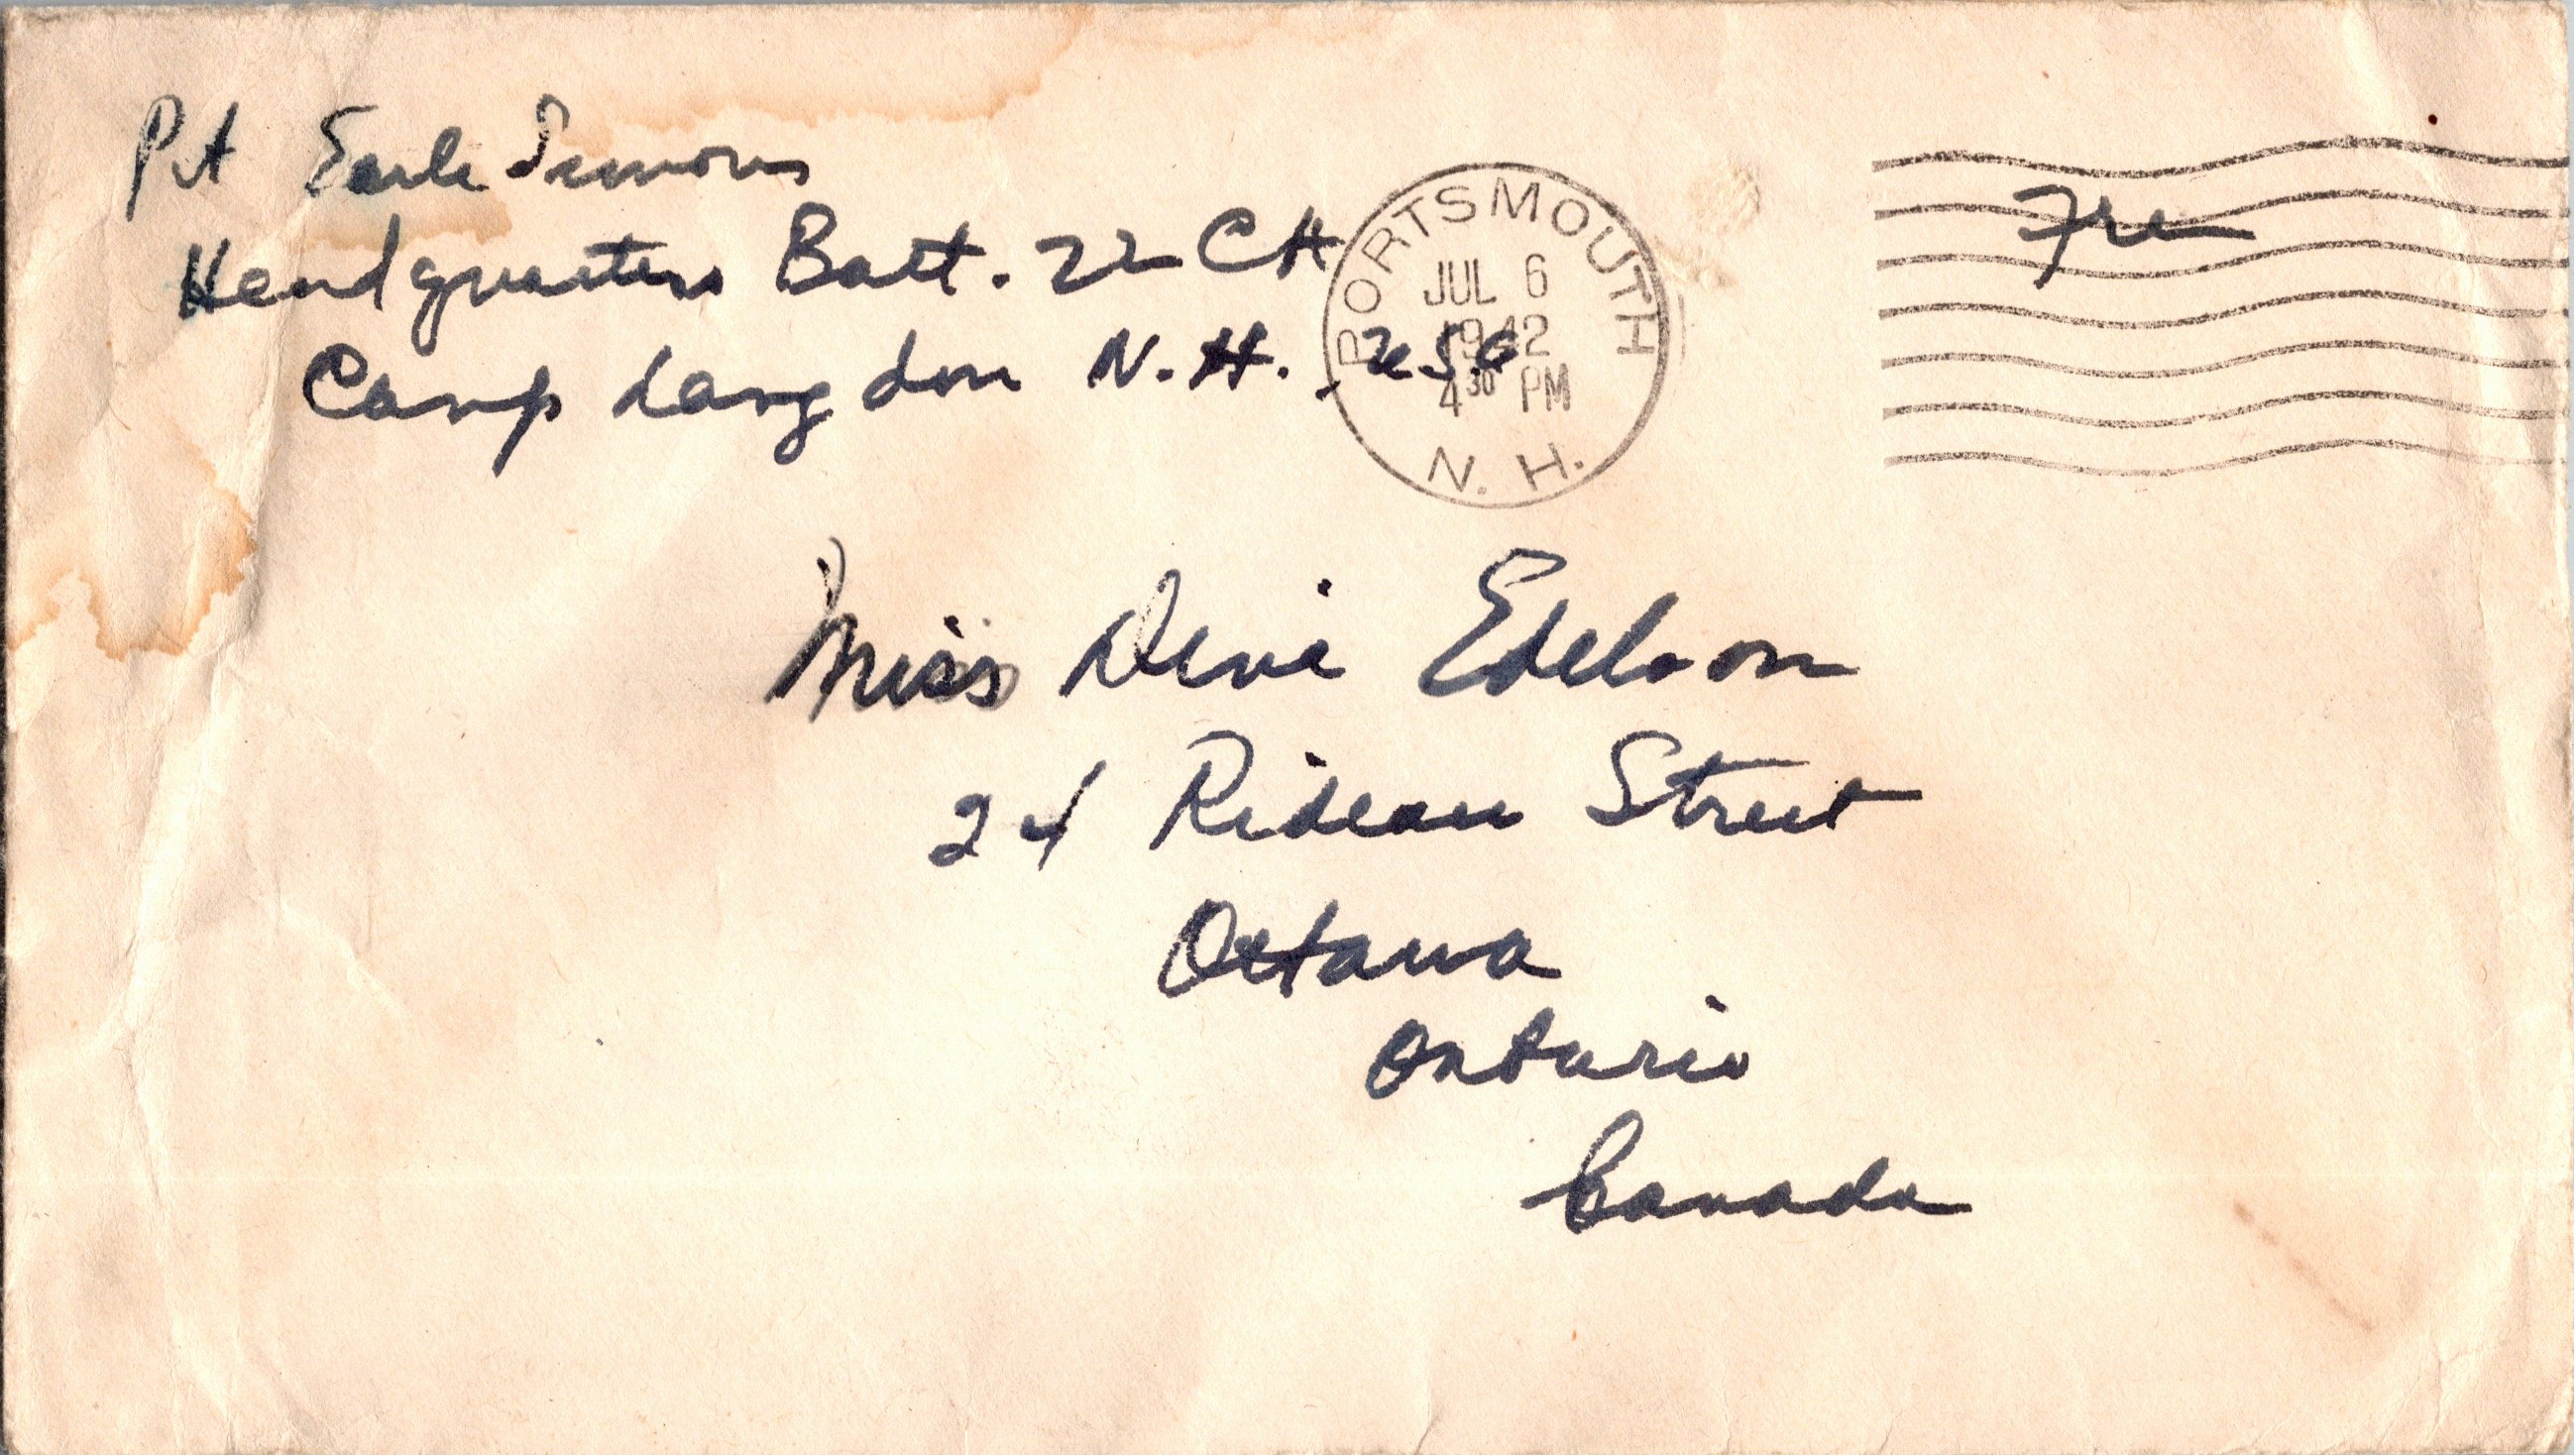 Pvt Earle Simons
Headquarters Batt. 22 CA
Camp Langdon N.H. USA
PORTSMOUTH
JUL 6
1942
4 30 PM
N. H.
Free
Miss Edelson
24 Rideau Street
Ottawa
Ontario
Canada